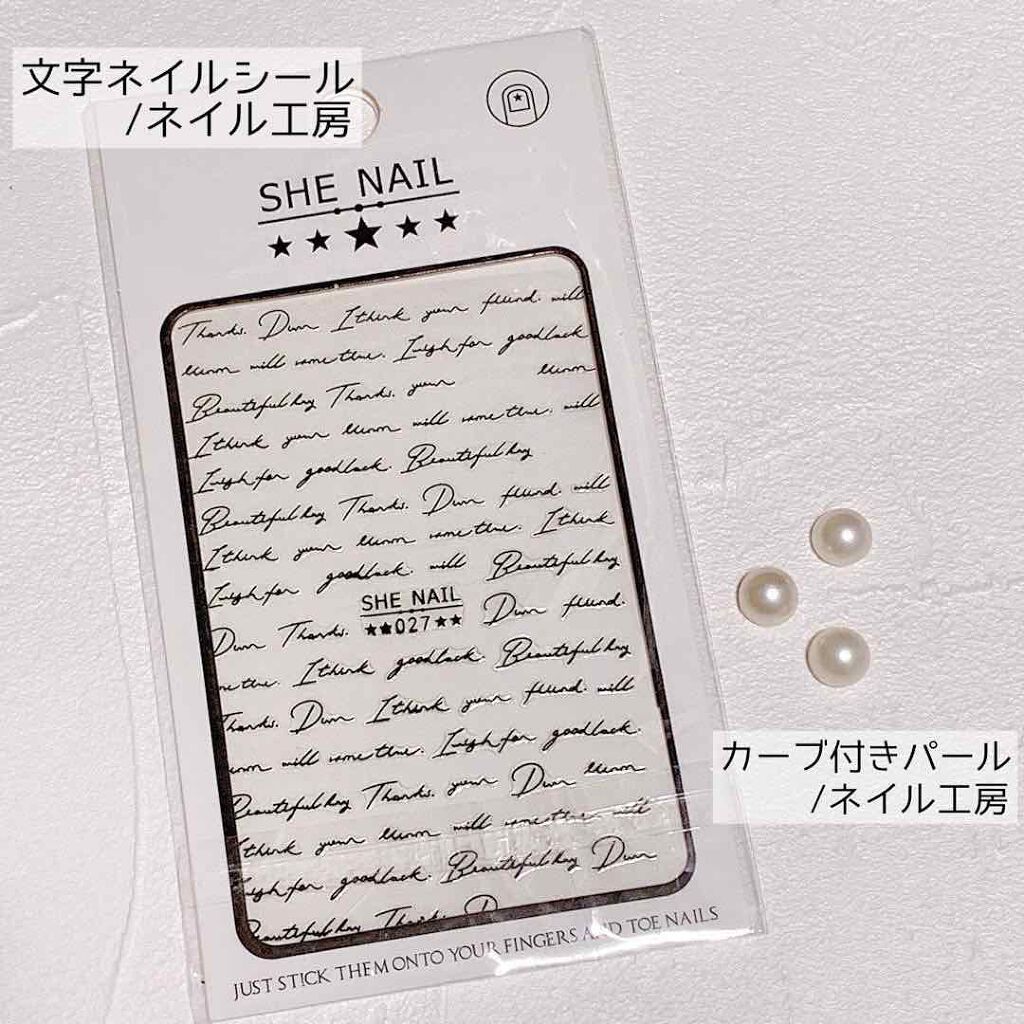 文字ネイルシール
/ネイル工房
SHE NAIL
Thanks. Dum I think your friend. will
will some time. I wish for goodluck
Beautiful key Thanks. your
I think your will some time. will
I wish for goodluck. Beautiful key
Beautiful key Thanks. Dum friend. will
I think your some time. I think
I wish for goodluck. will Beautiful key
SHE NAIL
Dum Thanks. ★★027★★ Dum friend.
me time. I think goodluck. Beautiful key
Thanks. Dum I think your friend. will
will some time. I wish for goodluck.
Beautiful key Thanks. your Dum
think your will some time will
wish for goodluck. Beautiful key Dum
Beautiful key Thanks. D
JUST STICK THEM ONTO YOUR FINGERS AND TOE NAILS
カーブ付きパール
/ネイル工房